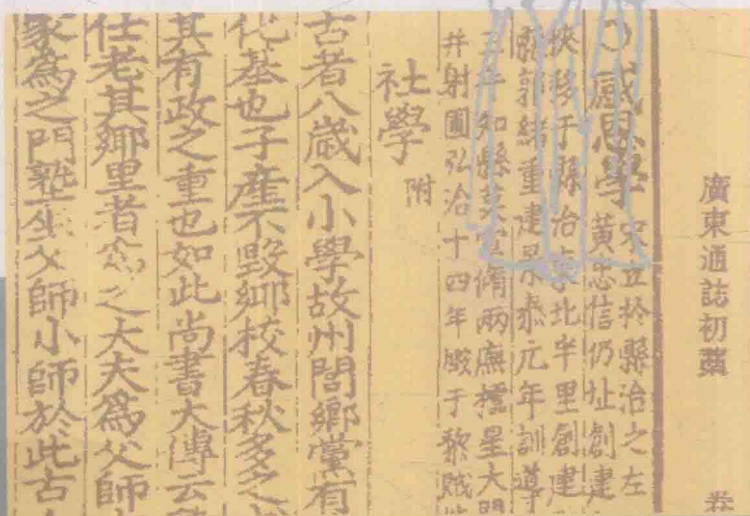 廣東通誌初藁 卷
感恩學 宋立於縣治之左
黃忠信仍址創建
挾移于縣治東北半里創建
郭緒重建景泰元年訓導
三年知縣 脩兩廡櫺星大門
井射圃弘治十四年厄于黎賊
社學 附
古者八歲入小學故州閭鄉黨有
化基也子產不毀鄉校春秋多之
其有政之重也如此尚書大傳云
仕老其鄉里者 之大夫為父師
家為之門塾 父師小師於此古